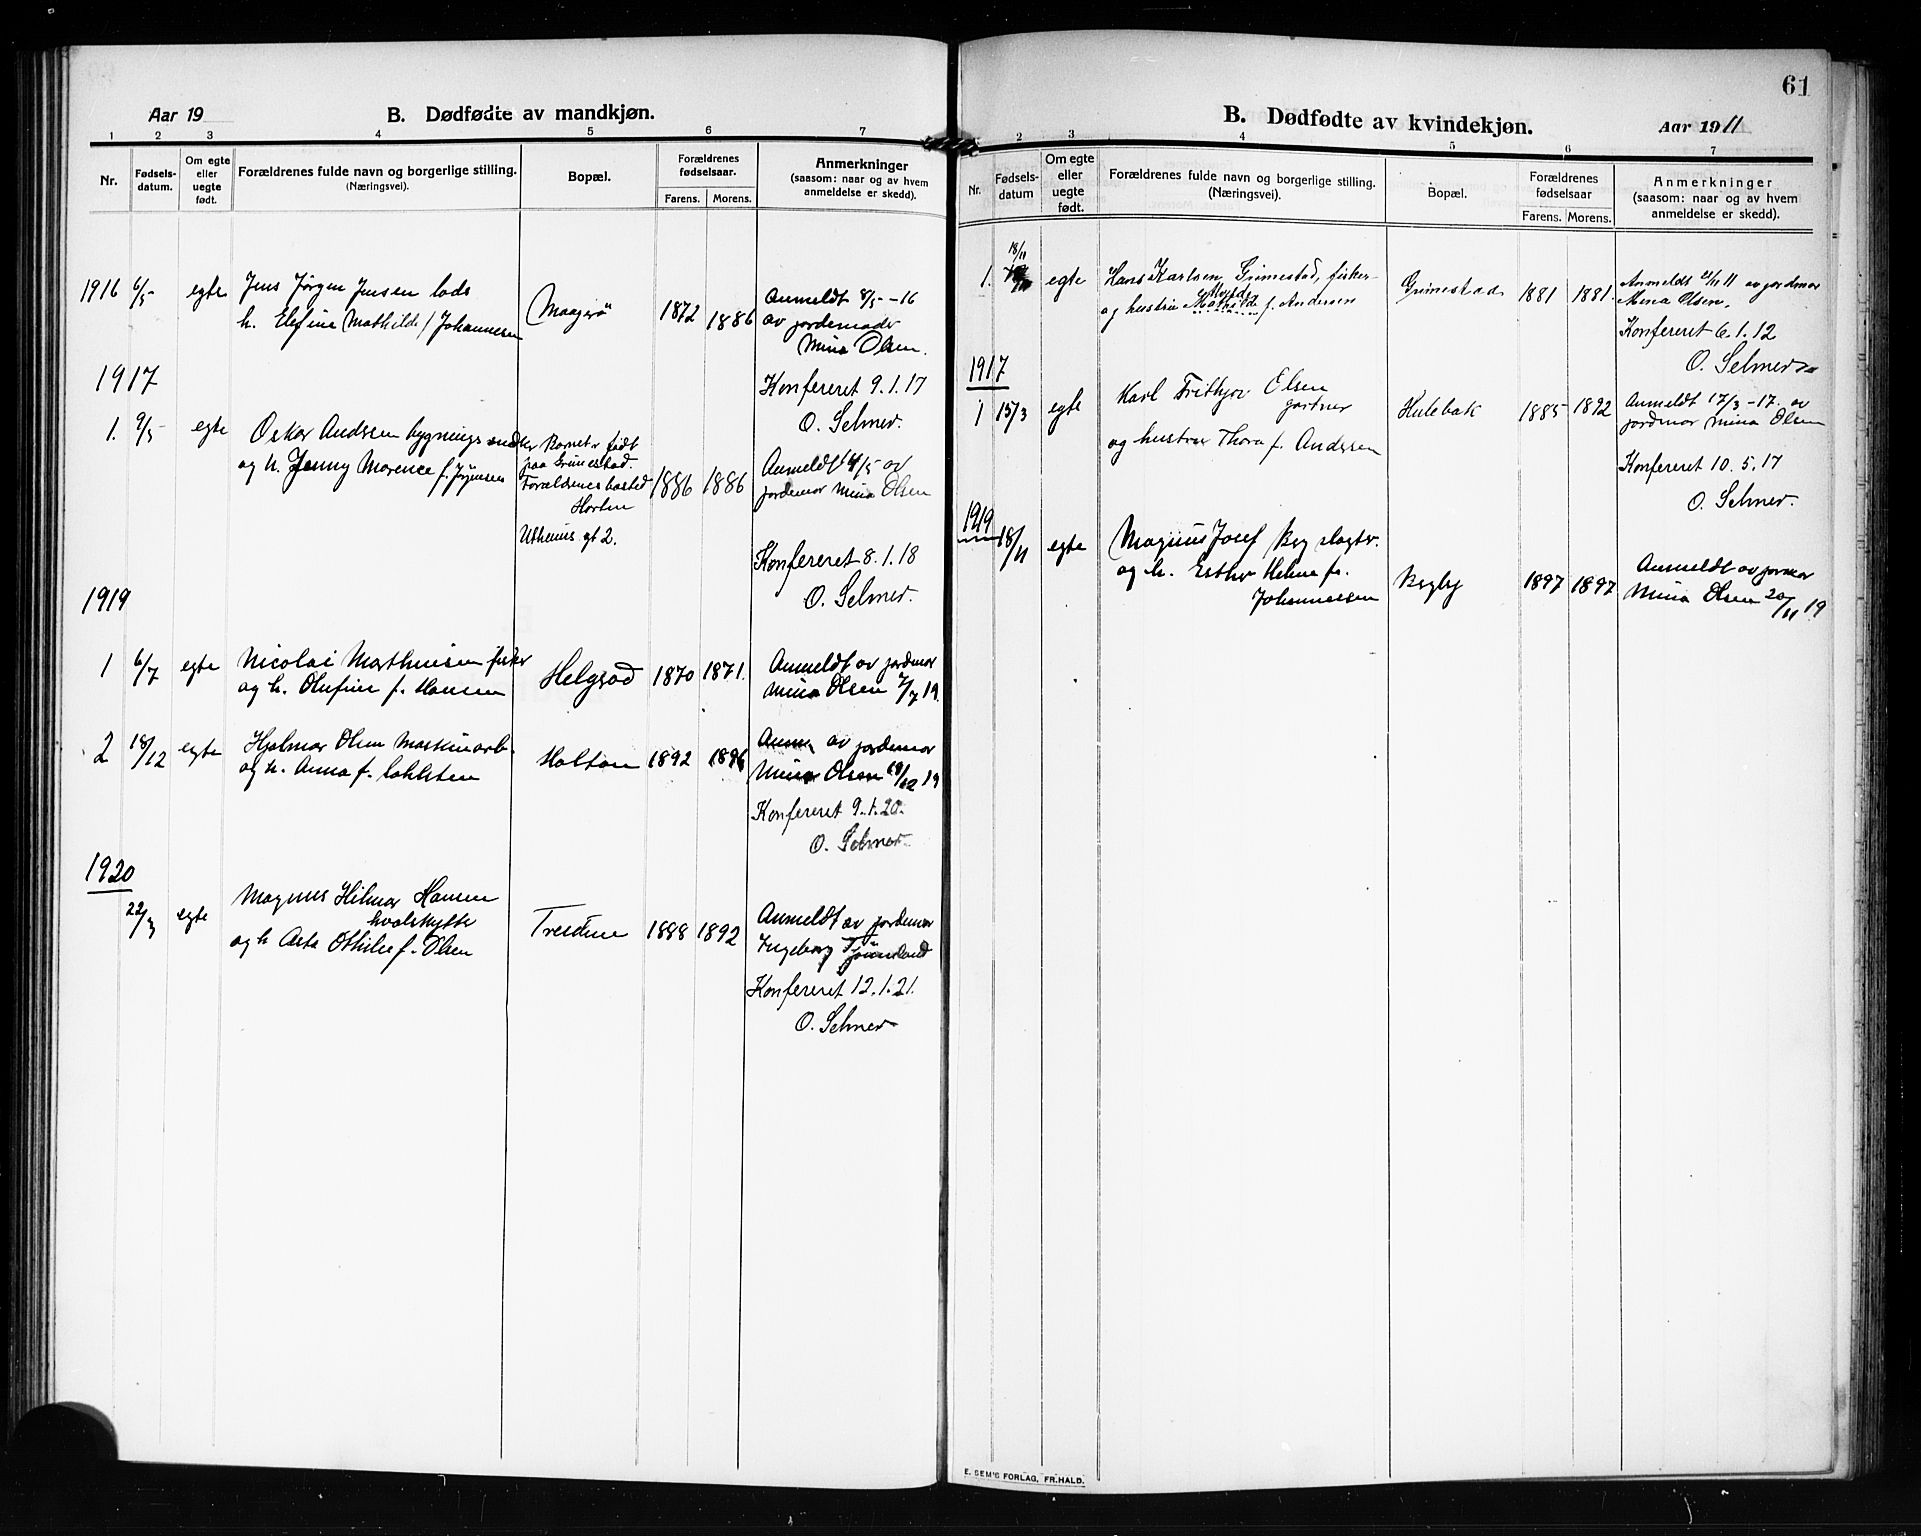 Aar 19
B. Dødfødte av mandkjøn.
1 2 3 4 5 6 7
Nr.
Fødsels-
datum.
Om egte
eller
uegte
født.
Forældrenes fulde navn og borgerlige stilling.
(Næringsvei).
Bopæl.
Forældrenes
fødselsaar.
Farens. Morens.
Anmerkninger
(saasom: naar og av hvem
anmeldelse er skedd).
1916 6/5 egte Jens Jørgen Jensen lods
h. Elefine Mathilde f Johannesen
Maagerö 1872 1886
Anmeldt 8/5-16
av jordemoder
Mina Olsen.
Konfereret 9.1.17
O. Selmer.
1917
1. 9/5 egte Oskar Andssen bygningssnedker
og h. Jenny Marence f. Jörgensen
Barnet er født
paa Grimestad.
Forældrenes bosted
Horten
gt 2.
1886 1886
Anmeldt 14/5 av
jordemor Mina Olsen
Konfereret 8.1.18
O. Selmer.
1919
1 6/7 egte Nicolai Marthinisen fisker
og h. Olufine f. Hansen
Helgerød 1870 1871.
Anmeldt av jordemor
Mina Olsen 7/7 19.
2 18/12 egte Hjalmar Olsen Maskinarb.
og h. Anna f.
Holtan 1892 1896
Anm. av jordemor
Mina Olsen 18/12 19
Konfereret 9.1.20.
O. Selmer
1920
22/3 egte Magnus Hilmar Hansen
hvalskytte
og h Asta Othilie f. Olsen
Treidene 1888 1892
Anmeldt av jordemor
Ingeborg Tjömeland
Konfereret 12.1.21.
O. Selmer
61
B. Dødfødte av kvindekjøn.
Aar 1911
2 3 4 5 6 7
Nr.
Fødsels-
datum
Om egte
eller
uegte
født.
Forældrenes fulde navn og borgerlige stilling.
(Næringsvei).
Bopæl.
Forældrenes
fødselsaar
Farens. Morens.
Anmerkninger
(saasom: naar og av hvem
anmeldelse er skedd).
1. 18/11 egte Hans Karlsen, Grimestad, fisker
og hustru Mathilde f. Andersen
Grimestad 1881 1881.
Anmeldt 21/11 11 av jordmor
Mina Olsen.
Konfereret 6.1.12
O. Selmer
1917
1 15/3 egte Karl Frithjov Elsen
gartner
og hustru Thora f. Andssen
Hulebak 1885 1892
Anmeldt 17/3-17. av
jordmor Mina Olsen
Konfereret 10.5.17
O. Selmer.
1919
18/11 egte Magnus Josef Berg slagter.
og h. Esther Helene f.
Johannessen
Bergby 1897 1897
Anmeldt av jormor
Mina Olsen 20/11 19
E. SEM'S FORLAG, FR.HALD.